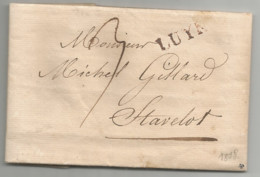 LUYK
Monsieur
Michel Gillard
Stavelot